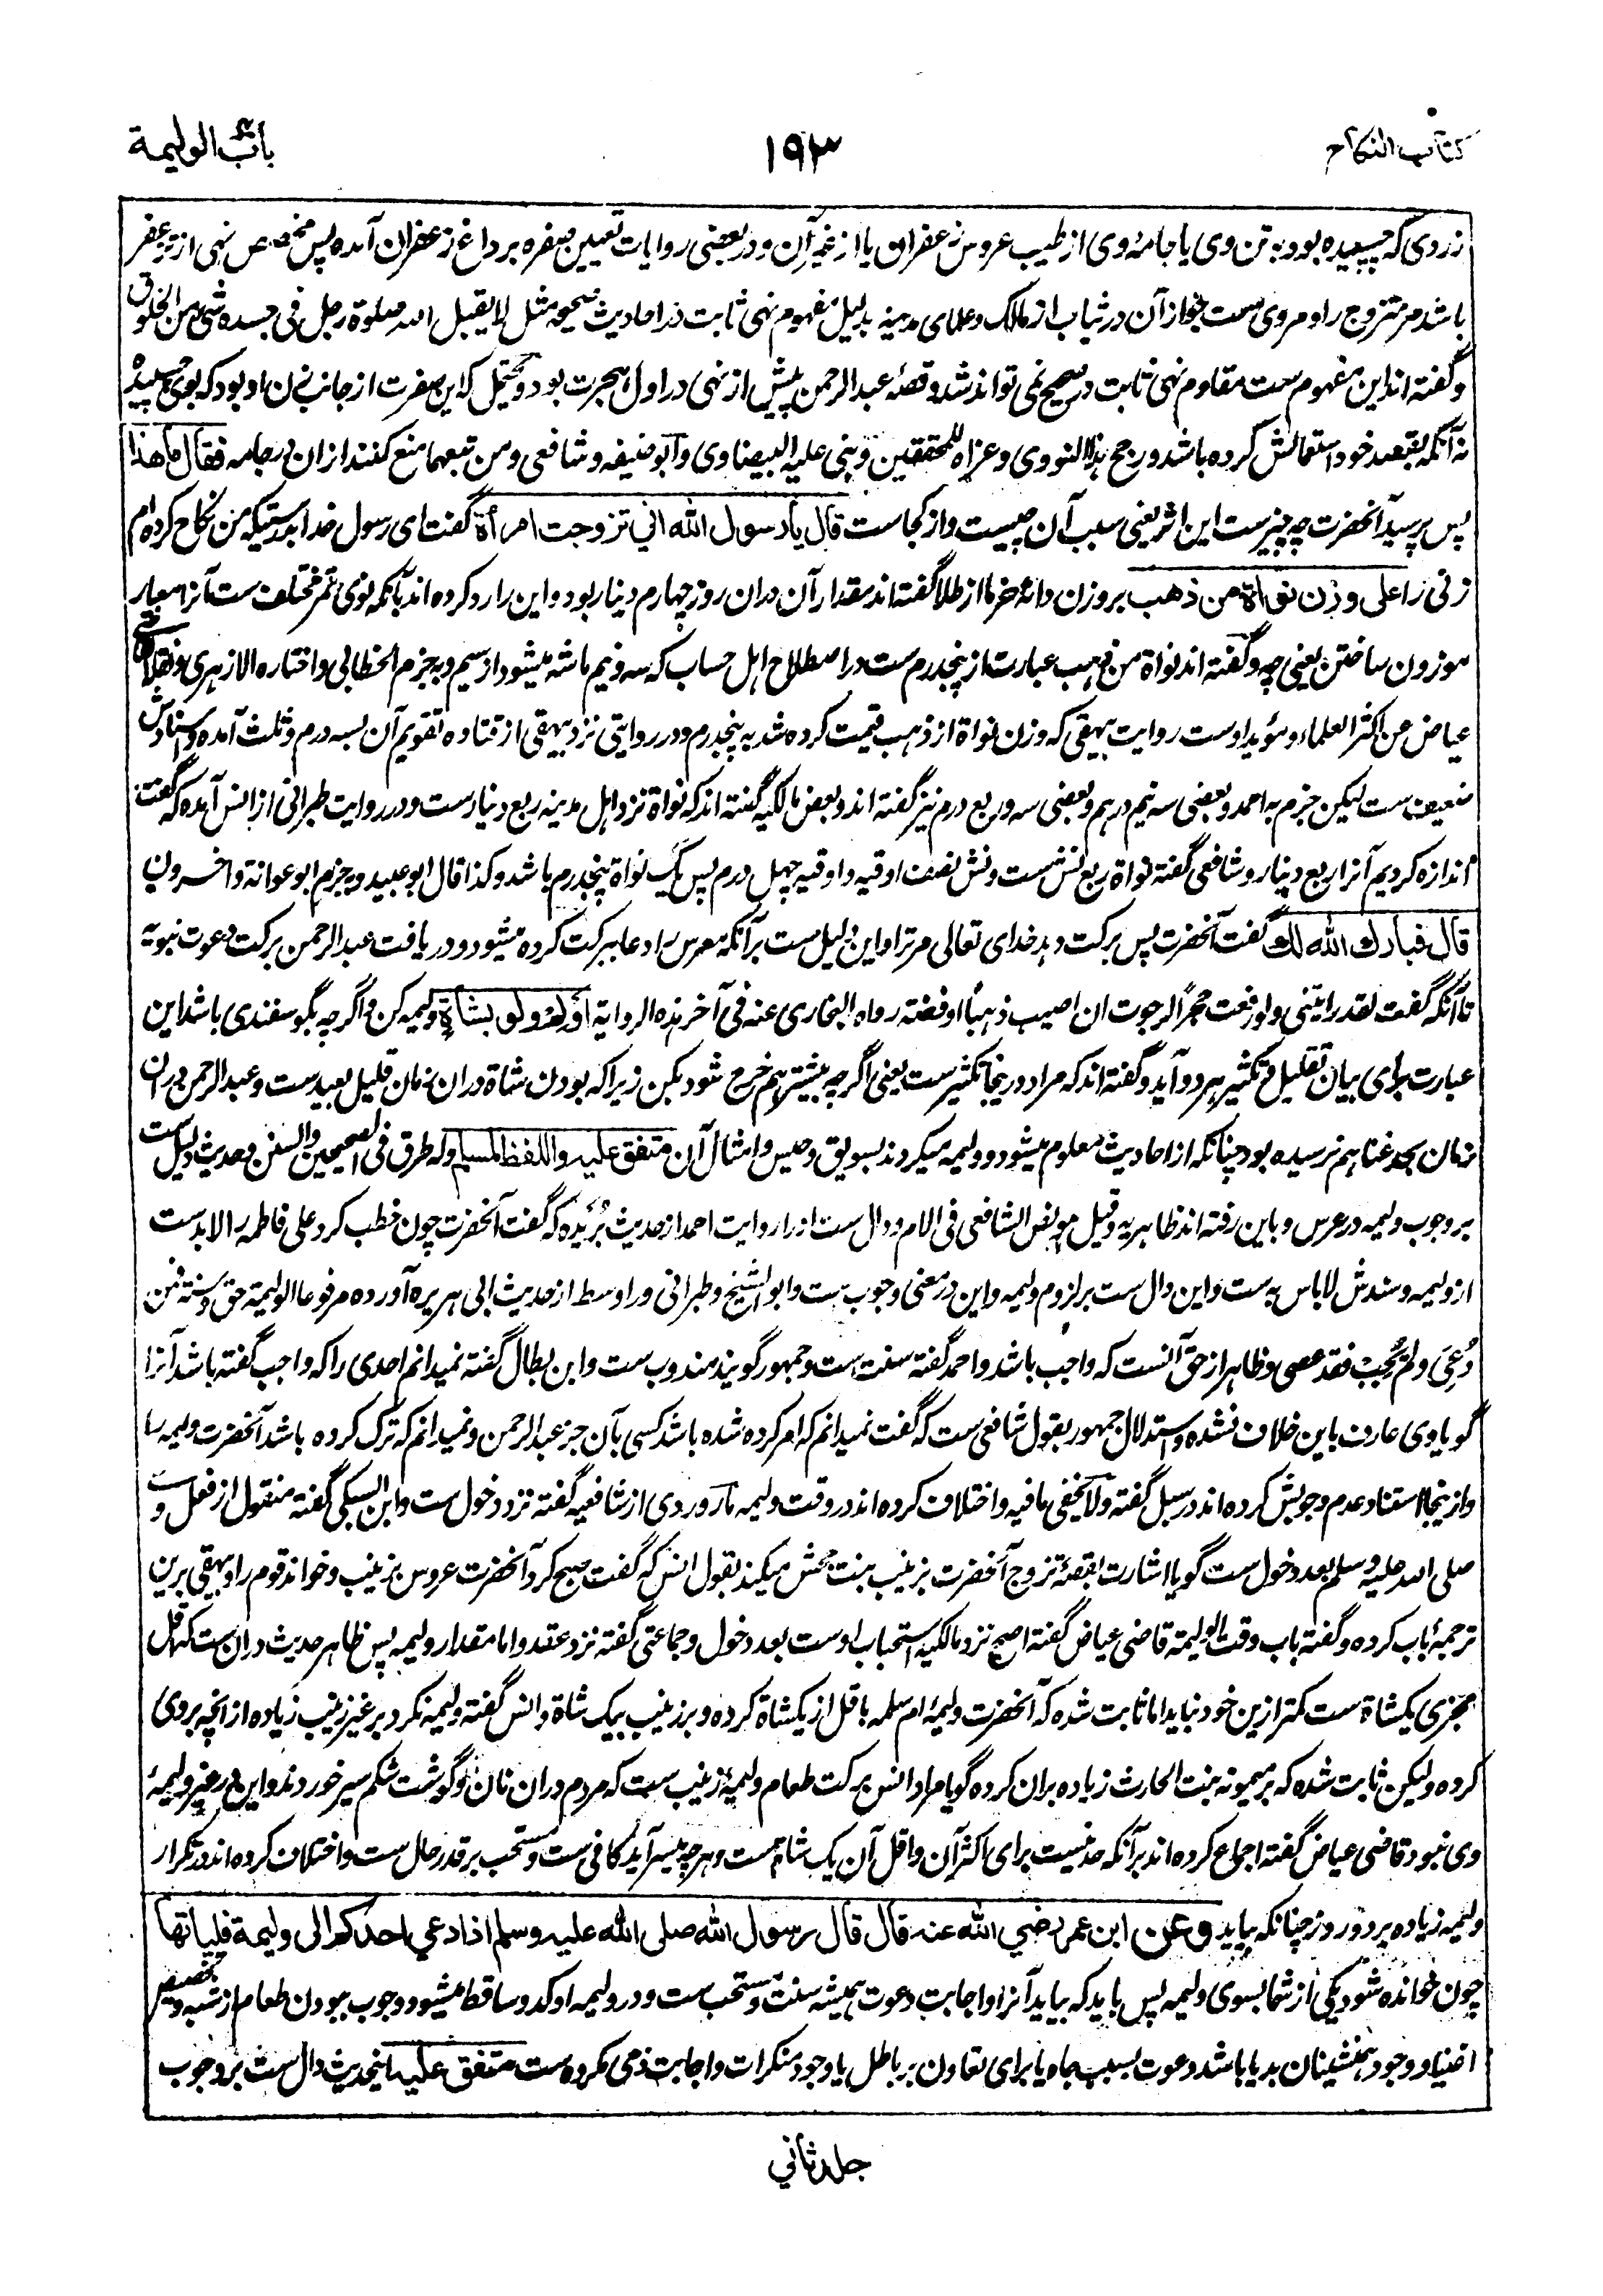 كتاب النكاح
١٩٣
باب الوليمة
زردی که چسپیده بود به تن وی یا جامهٔ وی از طیب عروس زعفران یا از غیر آن و در بعضی روایات تعیین صفره بر داغ زعفران آمده پس مخصص نهی از تزعفر
باشد مر متزوج را و مروی ست جواز آن در ثیاب از مالک و علمای مدینه بدلیل مفهوم نهی ثابت در احادیث صحیحه مثل لا یقبل الله صلوة رجل فی جسده شیء من الخلوق
و گفته اند این مفهوم ست مقاوم نهی ثابت در صحیح نمی تواند شد و قصهٔ عبدالرحمن پیش از نهی در اول هجرت بود و محتمل که این صفرت از جانب زن او بود که بوی چسپیده
نه آنکه بقصد خود استعمالش کرده باشد و رجح هذا النووی و عزاه للمحققین و بنی علیه البیضاوی و ابو حنیفه و شافعی و من تبعهما منع کنند از ان در جامه فقال ما هذا
پس پرسید آنحضرت چه چیز ست این اثر یعنی سبب آن چیست و از کجاست قال یا رسول الله اني تزوجت امرأة گفت ای رسول خدا بدرستیکه من نکاح کرده ام
زنی را علی وزن نواة من ذهب بر وزن دانهٔ خرما از طلا گفته اند مقدار آن در ان روز چهارم دینار بود و این را رد کرده اند بآنکه نوی تمر مختلف ست آنرا معیار
موزون ساختن یعنی چه و گفته اند نواة من ذهب عبارت از پنجدرم ست در اصطلاح اهل حساب که سه و نیم ماشه میشود از سیم و به جزم الخطابی و اختاره الازهری و نقله
عیاض عن اکثر العلماء و مؤید اوست روایت بیهقی که وزن نواة از ذهب قیمت کرده شد به پنجدرم و در روایتی نزد بیهقی از قتاده تقویم آن بسه درم و ثلث آمده و اسنادش
ضعیف ست لیکن جزم به احمد و بعضی سه نیم درهم و بعضی سه و ربع درم نیز گفته اند و بعض مالکیه گفته اند که نواة نزد اهل مدینه ربع دینارست و در روایت طبرانی از انس آمده که گفت
اندازه کردیم آنرا ربع دینار و شافعی گفته نواة ربع نش ست و نش نصف اوقیه و اوقیه چهل درم پس یک نواة پنجدرم باشد و کذا قال ابو عبید و به جزم ابو عوانة و اخرون
قال فبارك الله لك گفت آنحضرت پس برکت دهد خدای تعالی مر ترا و این دلیل ست بر آنکه معرس را دعا ببرکت کرده میشود و دریافت عبدالرحمن برکت دعوت نبویه
تا آنکه گفت لقد رایتنی و لو رفعت حجرا لرجوت ان اصیب ذهبا او فضة رواه البخاری عنه فی آخر هذه الروایة اولم ولو بشاة ولیمه کن و اگرچه بگوسفندی باشد این
عبارت برای بیان تقلیل و تکثیر هر دو آید و گفته اند که مراد درینجا تکثیرست یعنی اگرچه بیشتر هم خرج شود بکن زیرا که بودن شاة در ان زمان قلیل بعیدست و عبدالرحمن در ان
زمان بحد غنا هم نرسیده بود چنانکه از احادیث معلوم میشود و ولیمه میکردند بسویق و حیس و امثال آن متفق علیه واللفظ لمسلم و له طرق فی الصحیحین و السنن و حدیث دلیل ست
بر وجوب ولیمه در عرس و باین رفته اند ظاهریه و قیل هو نص الشافعی فی الام و دال ست او را روایت احمد از حدیث بُرَیده که گفت آنحضرت چون خطب کرد علی فاطمه را لابدست
از ولیمه و سندش لا باس به ست و این دال ست بر لزوم ولیمه و این در معنی وجوب ست و ابو الشیخ و طبرانی در اوسط از حدیث ابی هریره آورده مرفوعا الولیمة حق و سنة فمن
دُعِیَ و لم یُجِبْ فقد عصی و ظاهر از حق آنست که واجب باشد و احمد گفته سنت است و جمهور گویند مندوب ست و ابن بطال گفته نمیدانم احدی را که واجب گفته باشد آنرا
گویا وی عارف باین خلاف نشده و استدلال جمهور بقول شافعی ست که گفت نمیدانم که امر کرده شده باشد کسی بآن جز عبدالرحمن و نمیدانم که ترک کرده باشد آنحضرت ولیمه را
و ازینجا استناد عدم وجوبش کرده اند در سبل گفته و لا یخفی ما فیه و اختلاف کرده اند در وقت ولیمه ماوردی از شافعیه گفته نزد دخول ست و ابن السبکی گفته منقول از فعل وی
صلی الله علیه و سلم بعد دخول ست گویا اشارت بقصهٔ تزوج آنحضرت بزینب بنت جحش میکند بقول انس که گفت صبح کرد آنحضرت عروس بزینب و خواند قوم را و بیهقی برین
ترجمهٔ باب کرده و گفته باب وقت الولیمة قاضی عیاض گفته اصح نزد مالکیه استحباب اوست بعد دخول و جماعتی گفته نزد عقد و اما مقدار ولیمه پس ظاهر حدیث در ان ست که اقل
مجزی یکشاة ست کمتر ازین خود نباید اما ثابت شده که آنحضرت ولیمهٔ ام سلمه باقل از یکشاة کرده و بر زینب بیک شاة و انس گفته ولیمه نکرد بر غیر زینب زیاده از انچه بر وی
کرده و لیکن ثابت شده که بر میمونه بنت الحارث زیاده بر ان کرده گویا مراد انس برکت طعام ولیمهٔ زینب ست که مردم در ان نان و گوشت شکم سیر خوردند و این در غیر ولیمهٔ
وی نبود قاضی عیاض گفته اجماع کرده اند بر آنکه حد نیست برای اکثر آن و اقل آن یک شاة ست و هرچه میسر آید کافی ست و مستحب بر قدر حال ست و اختلاف کرده اند در تکرار
ولیمه زیاده بر دو روز چنانکه بیاید وعن ابن عمر رضي الله عنه قال قال رسول الله صلی الله علیه وسلم اذا دعي احدكم الی ولیمة فلیاتها
چون خوانده شود یکی از شما بسوی ولیمه پس باید که بیاید آنرا و اجابت دعوت همیشه سنت و مستحب ست و در ولیمه اوکد و ساقط میشود وجوب ببودن طعام از شبه و تخصیص
اغنیا و وجود همنشینان بد یا باشد دعوت بسبب جاه یا برای تعاون بر باطل یا وجود منکرات و اجابت ذمی مکروه ست متفق علیه اینحدیث دال ست بر وجوب
جلد ثاني